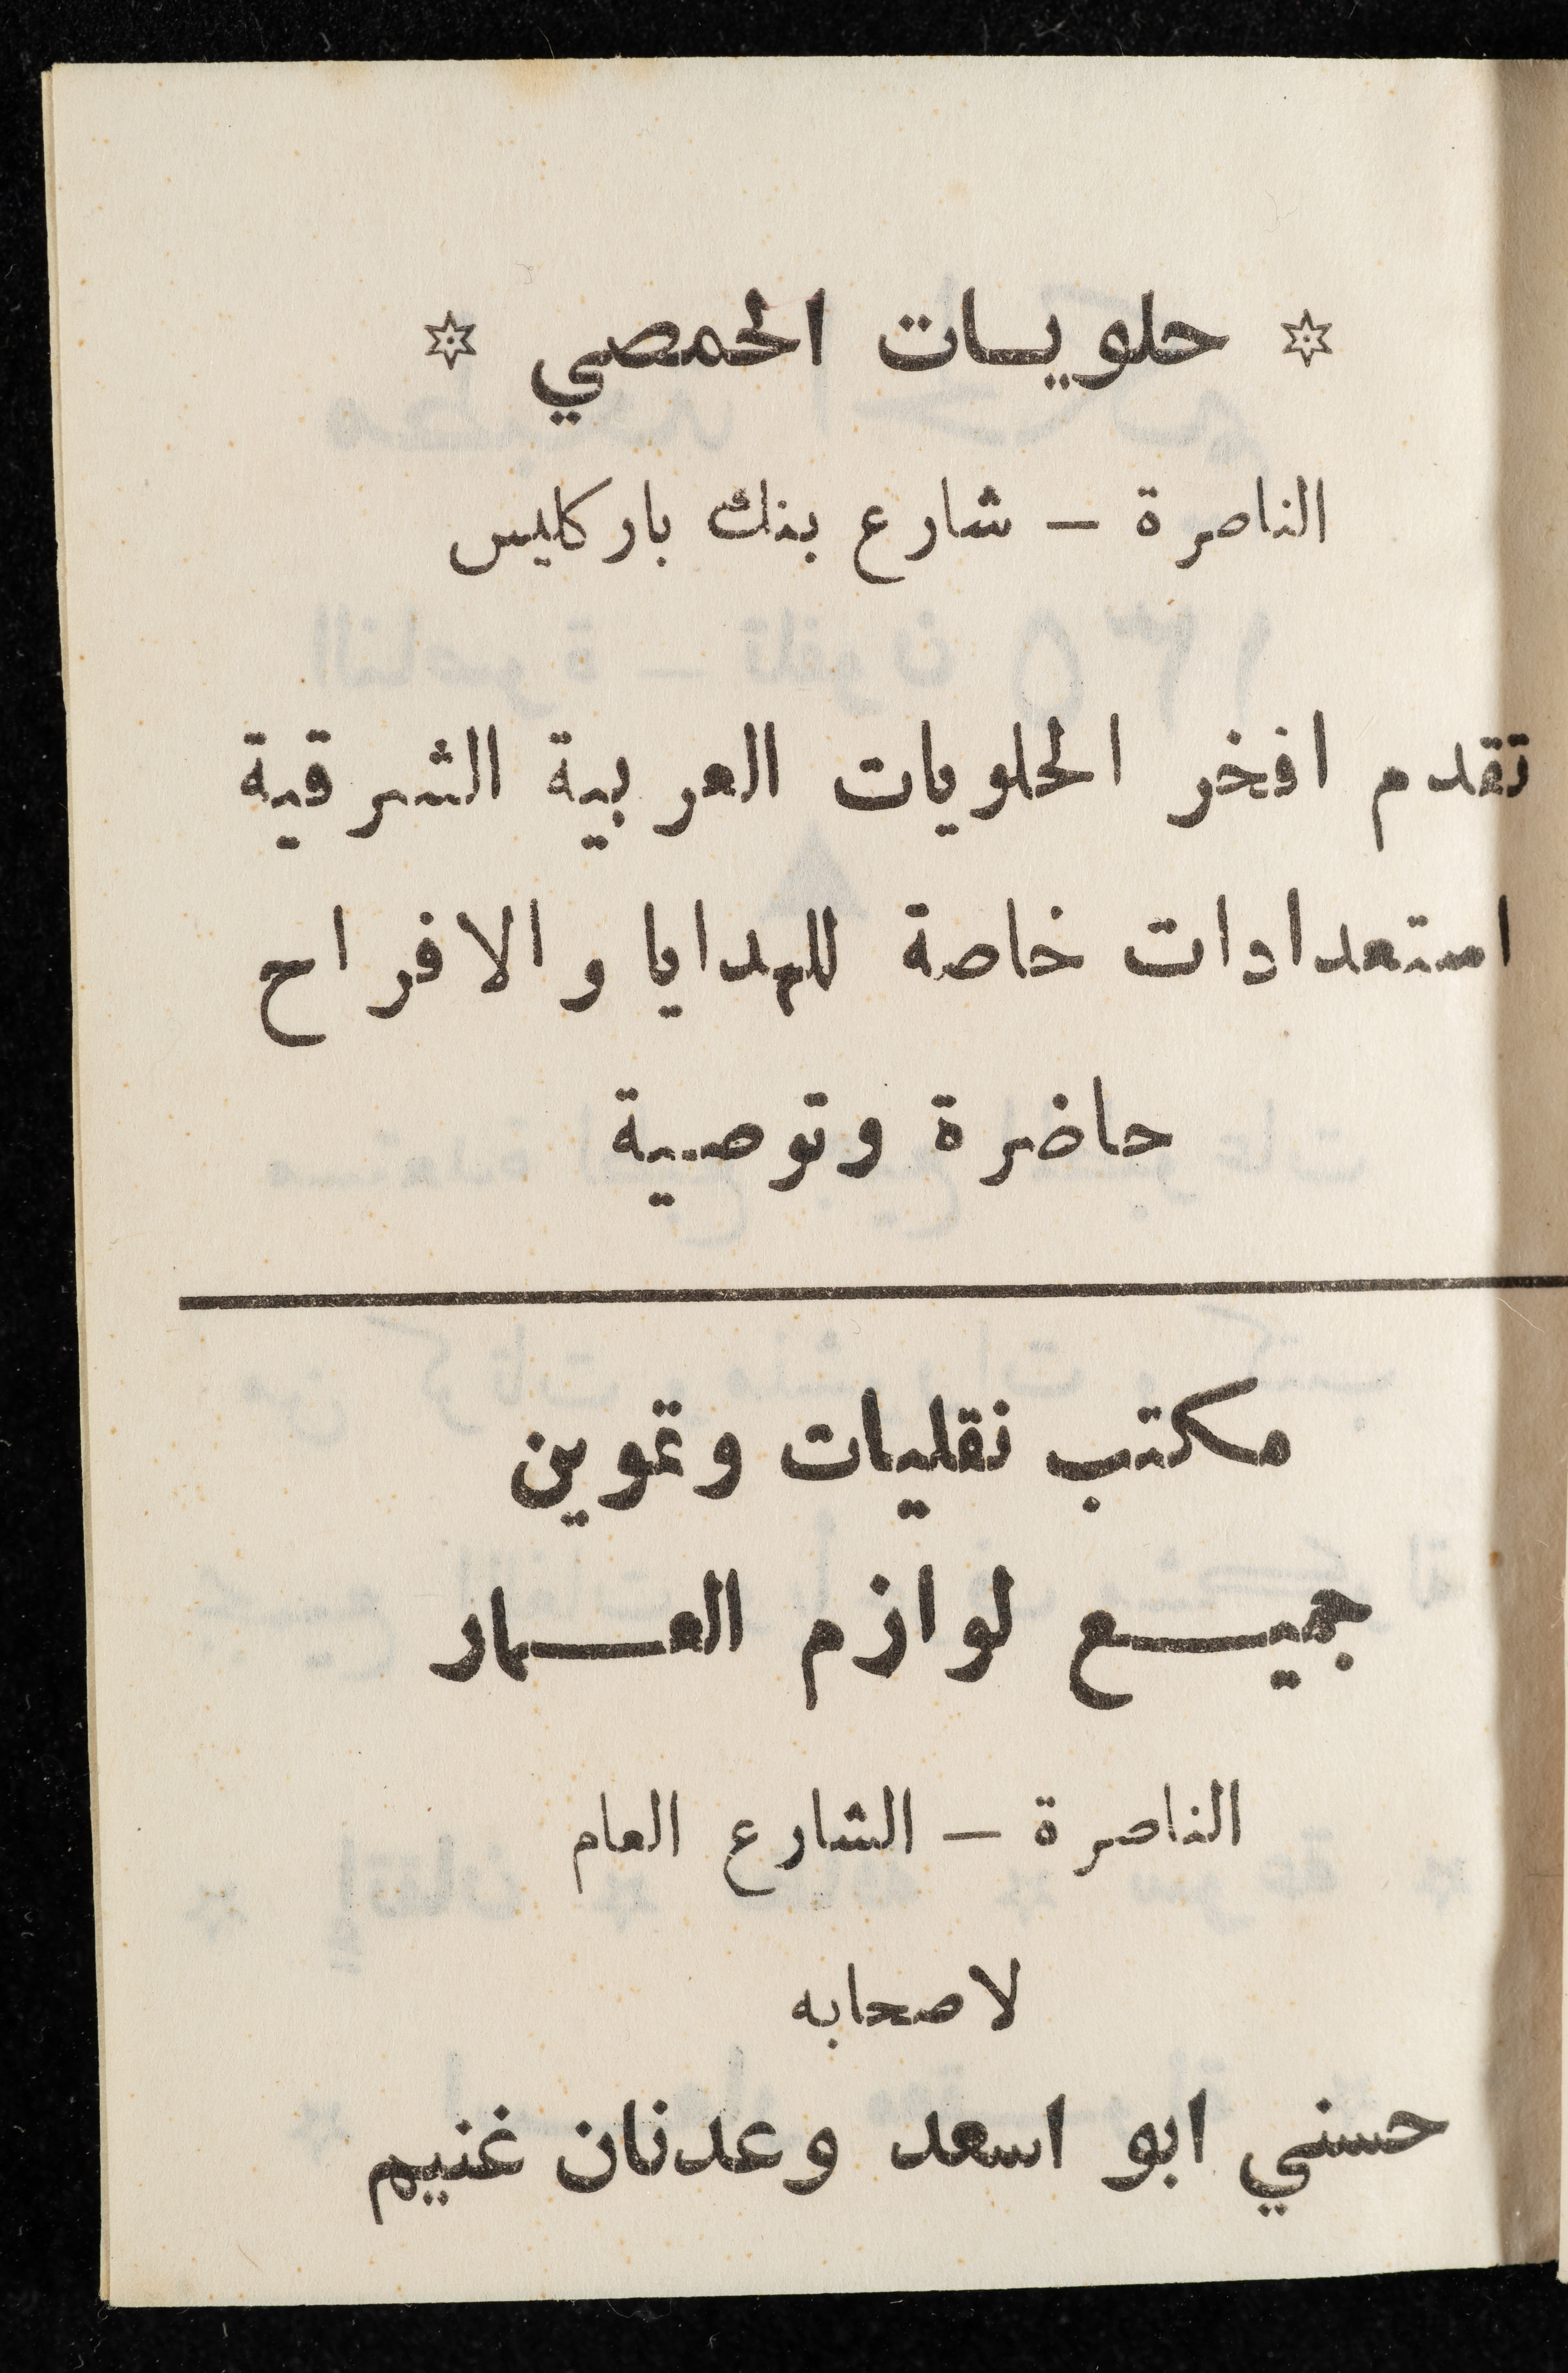 ✡ حلويات الحمصي ✡
الناصرة – شارع بنك باركليس
تقدم افخر الحلويات العربية الشرقية
استعدادات خاصة للهدايا والافراح
حاضرة وتوصية
مكتب نقليات وتموين
جميع لوازم العمار
الناصرة – الشارع العام
لاصحابه
حسني ابو اسعد وعدنان غنيم